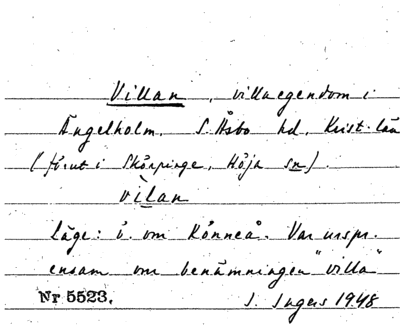 Villan, villaegendom i
Ängelholm, S. Åsbo hd, Krist. län
(förut i Skörpinge, Höja sn).
vìlan
Läge: ö. om Rönneå. Var urspr.
ensam om benämningen "villa"
Nr 5523. J. Ingers 1948